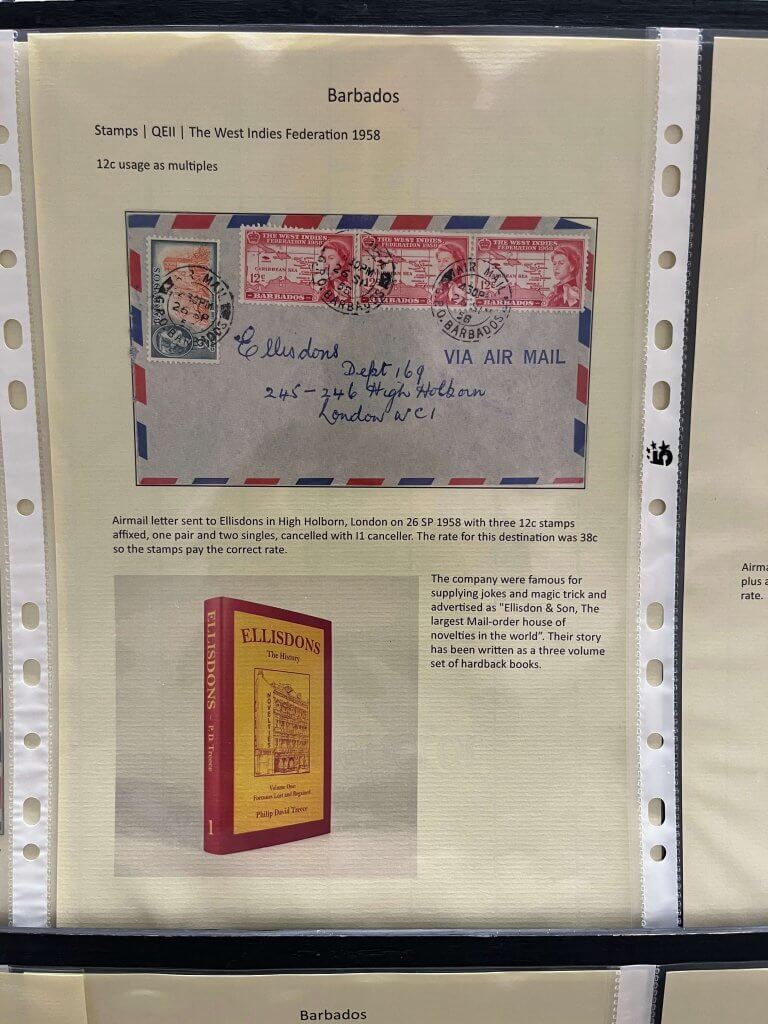 Barbados
Stamps | QEII | The West Indies Federation 1958
12c usage as multiples
THE WEST INDIES
FEDERATION 1958
CARIBBEAN SEA
12c
BARBADOS
THE WEST INDIES
FEDERATION 1958
BARBADOS
THE WEST INDIES
FEDERATION 1958
CARIBBEAN SEA
12c
BARBADOS
AIR MAIL
26 SP
G.P.O. BARBADOS
AIR MAIL
4 30PM
58
G.P.O. BARBADOS
VIA AIR MAIL
Ellisdons
Dept 169
245-246 High Holborn
London WC1
Airmail letter sent to Ellisdons in High Holborn, London on 26 SP 1958 with three 12c stamps
affixed, one pair and two singles, cancelled with I1 canceller. The rate for this destination was 38c
so the stamps pay the correct rate.
The company were famous for
supplying jokes and magic trick and
advertised as "Ellisdon & Son, The
largest Mail-order house of
novelties in the world". Their story
has been written as a three volume
set of hardback books.
ELLISDONS - P. D. Treece
1
ELLISDONS
The History
NOVELTIES
Volume One:
Fortunes Lost and Regained
Philip David Treece
15
Airma
plus a
rate.
Barbados